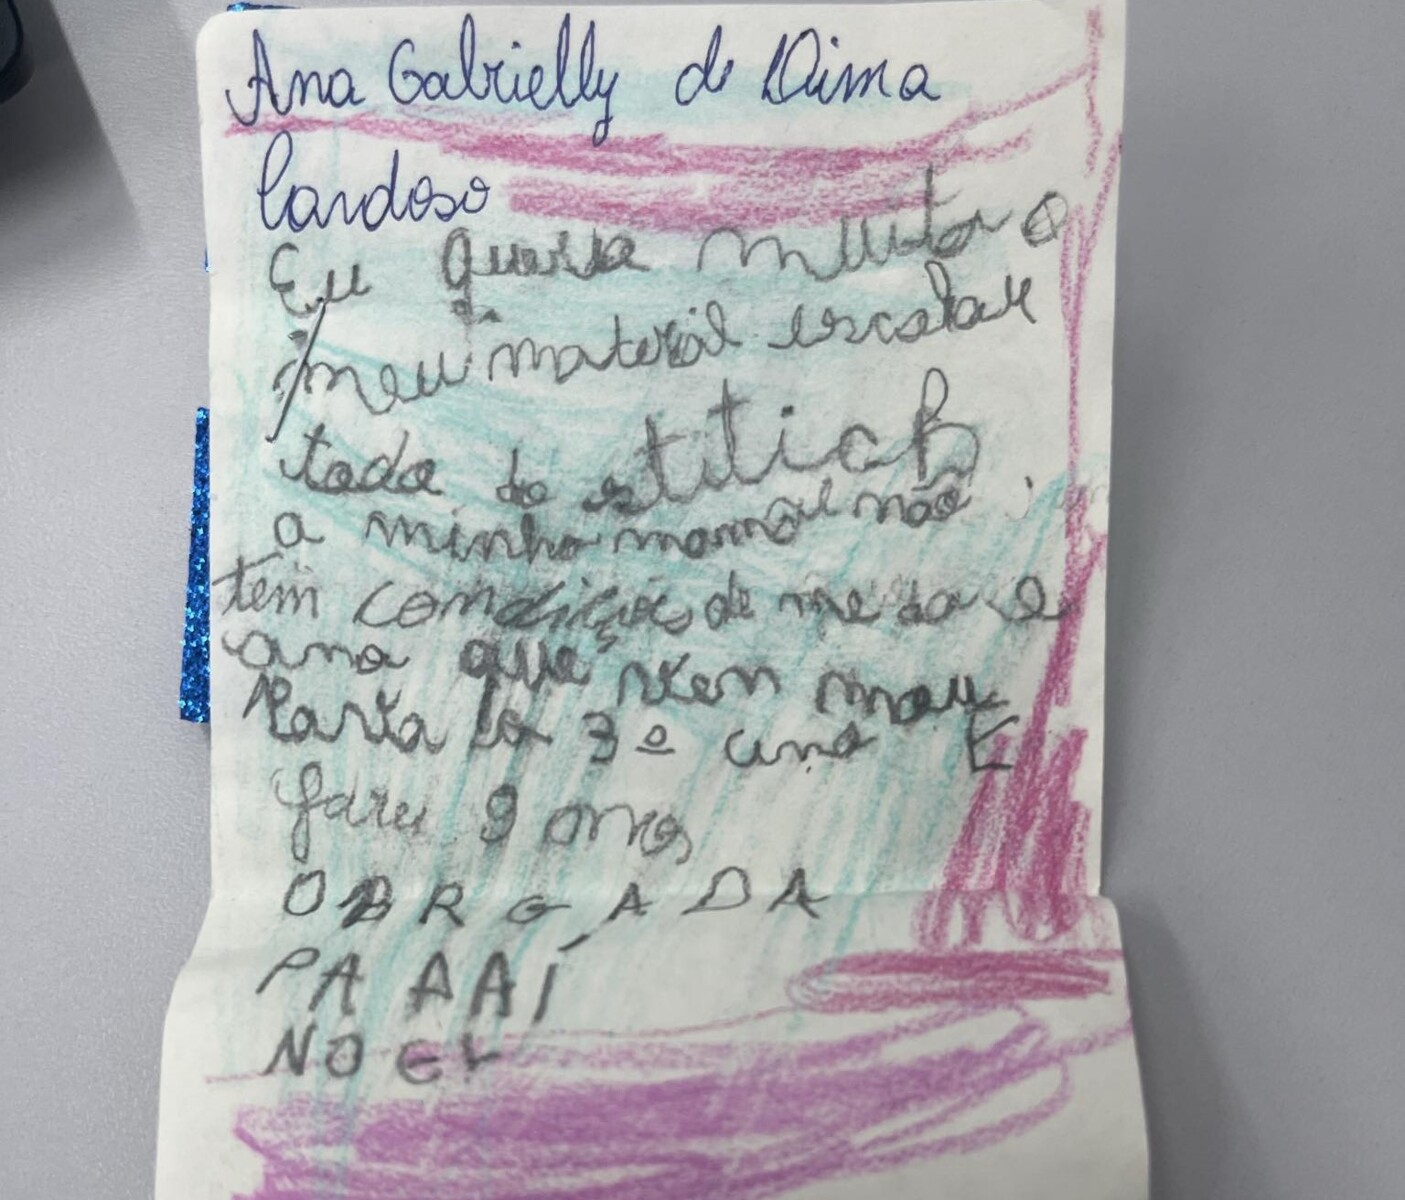 Ana Gabrielly de Lima
Cardoso
Eu queria muito o
meu material escolar
todo do estitich
a minha mamãe não
tem condições de me da e
ano que vem vou
Para la 3º ano E
faru 9 anos
OBRGADA
PA AAÍ
NOEL